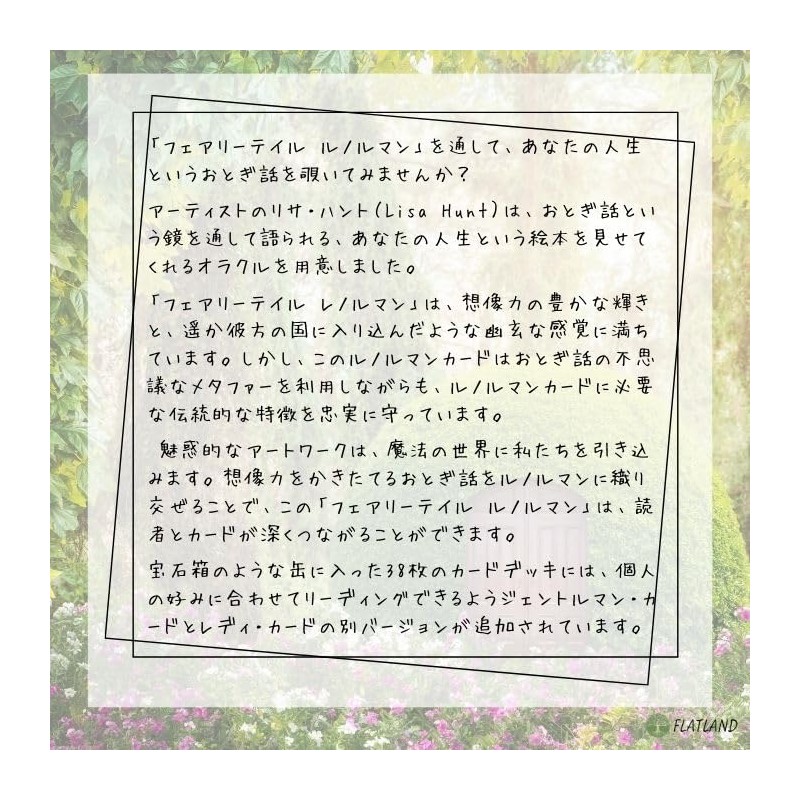 「フェアリーテイル ルノルマン」を通して、あなたの人生
というおとぎ話を覗いてみませんか？
アーティストのリサ・ハント(Lisa Hunt)は、おとぎ話とい
う鏡を通して語られる、あなたの人生という絵本を見せて
くれるオラクルを用意しました。
「フェアリーテイル レノルマン」は、想像力の豊かな輝き
と、遥か彼方の国に入り込んだような幽玄な感覚に満ち
ています。しかし、このルノルマンカードはおとぎ話の不思
議なメタファーを利用しながらも、ルノルマンカードに必要
な伝統的な特徴を忠実に守っています。
魅惑的なアートワークは、魔法の世界に私たちを引き込
みます。想像力をかきたてるおとぎ話をルノルマンに織り
交ぜることで、この「フェアリーテイル ルノルマン」は、読
者とカードが深くつながることができます。
宝石箱のような缶に入った38枚のカードデッキには、個人
の好みに合わせてリーディングできるようジェントルマン・カ
ードとレディ・カードの別バージョンが追加されています。
FLATLAND